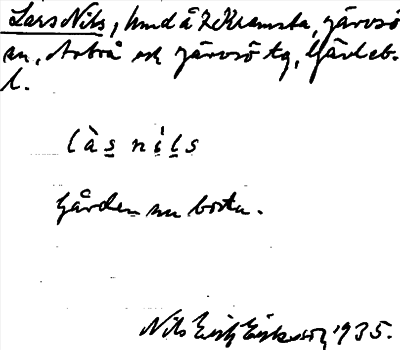 Lars Nils, hmd å 2 Kramsta, Järvsö
sn, Arbrå och Järvsö tg, Gävleb.
l.
làs nils
Gården nu borta.
Nils Erik Eriksson 1935.